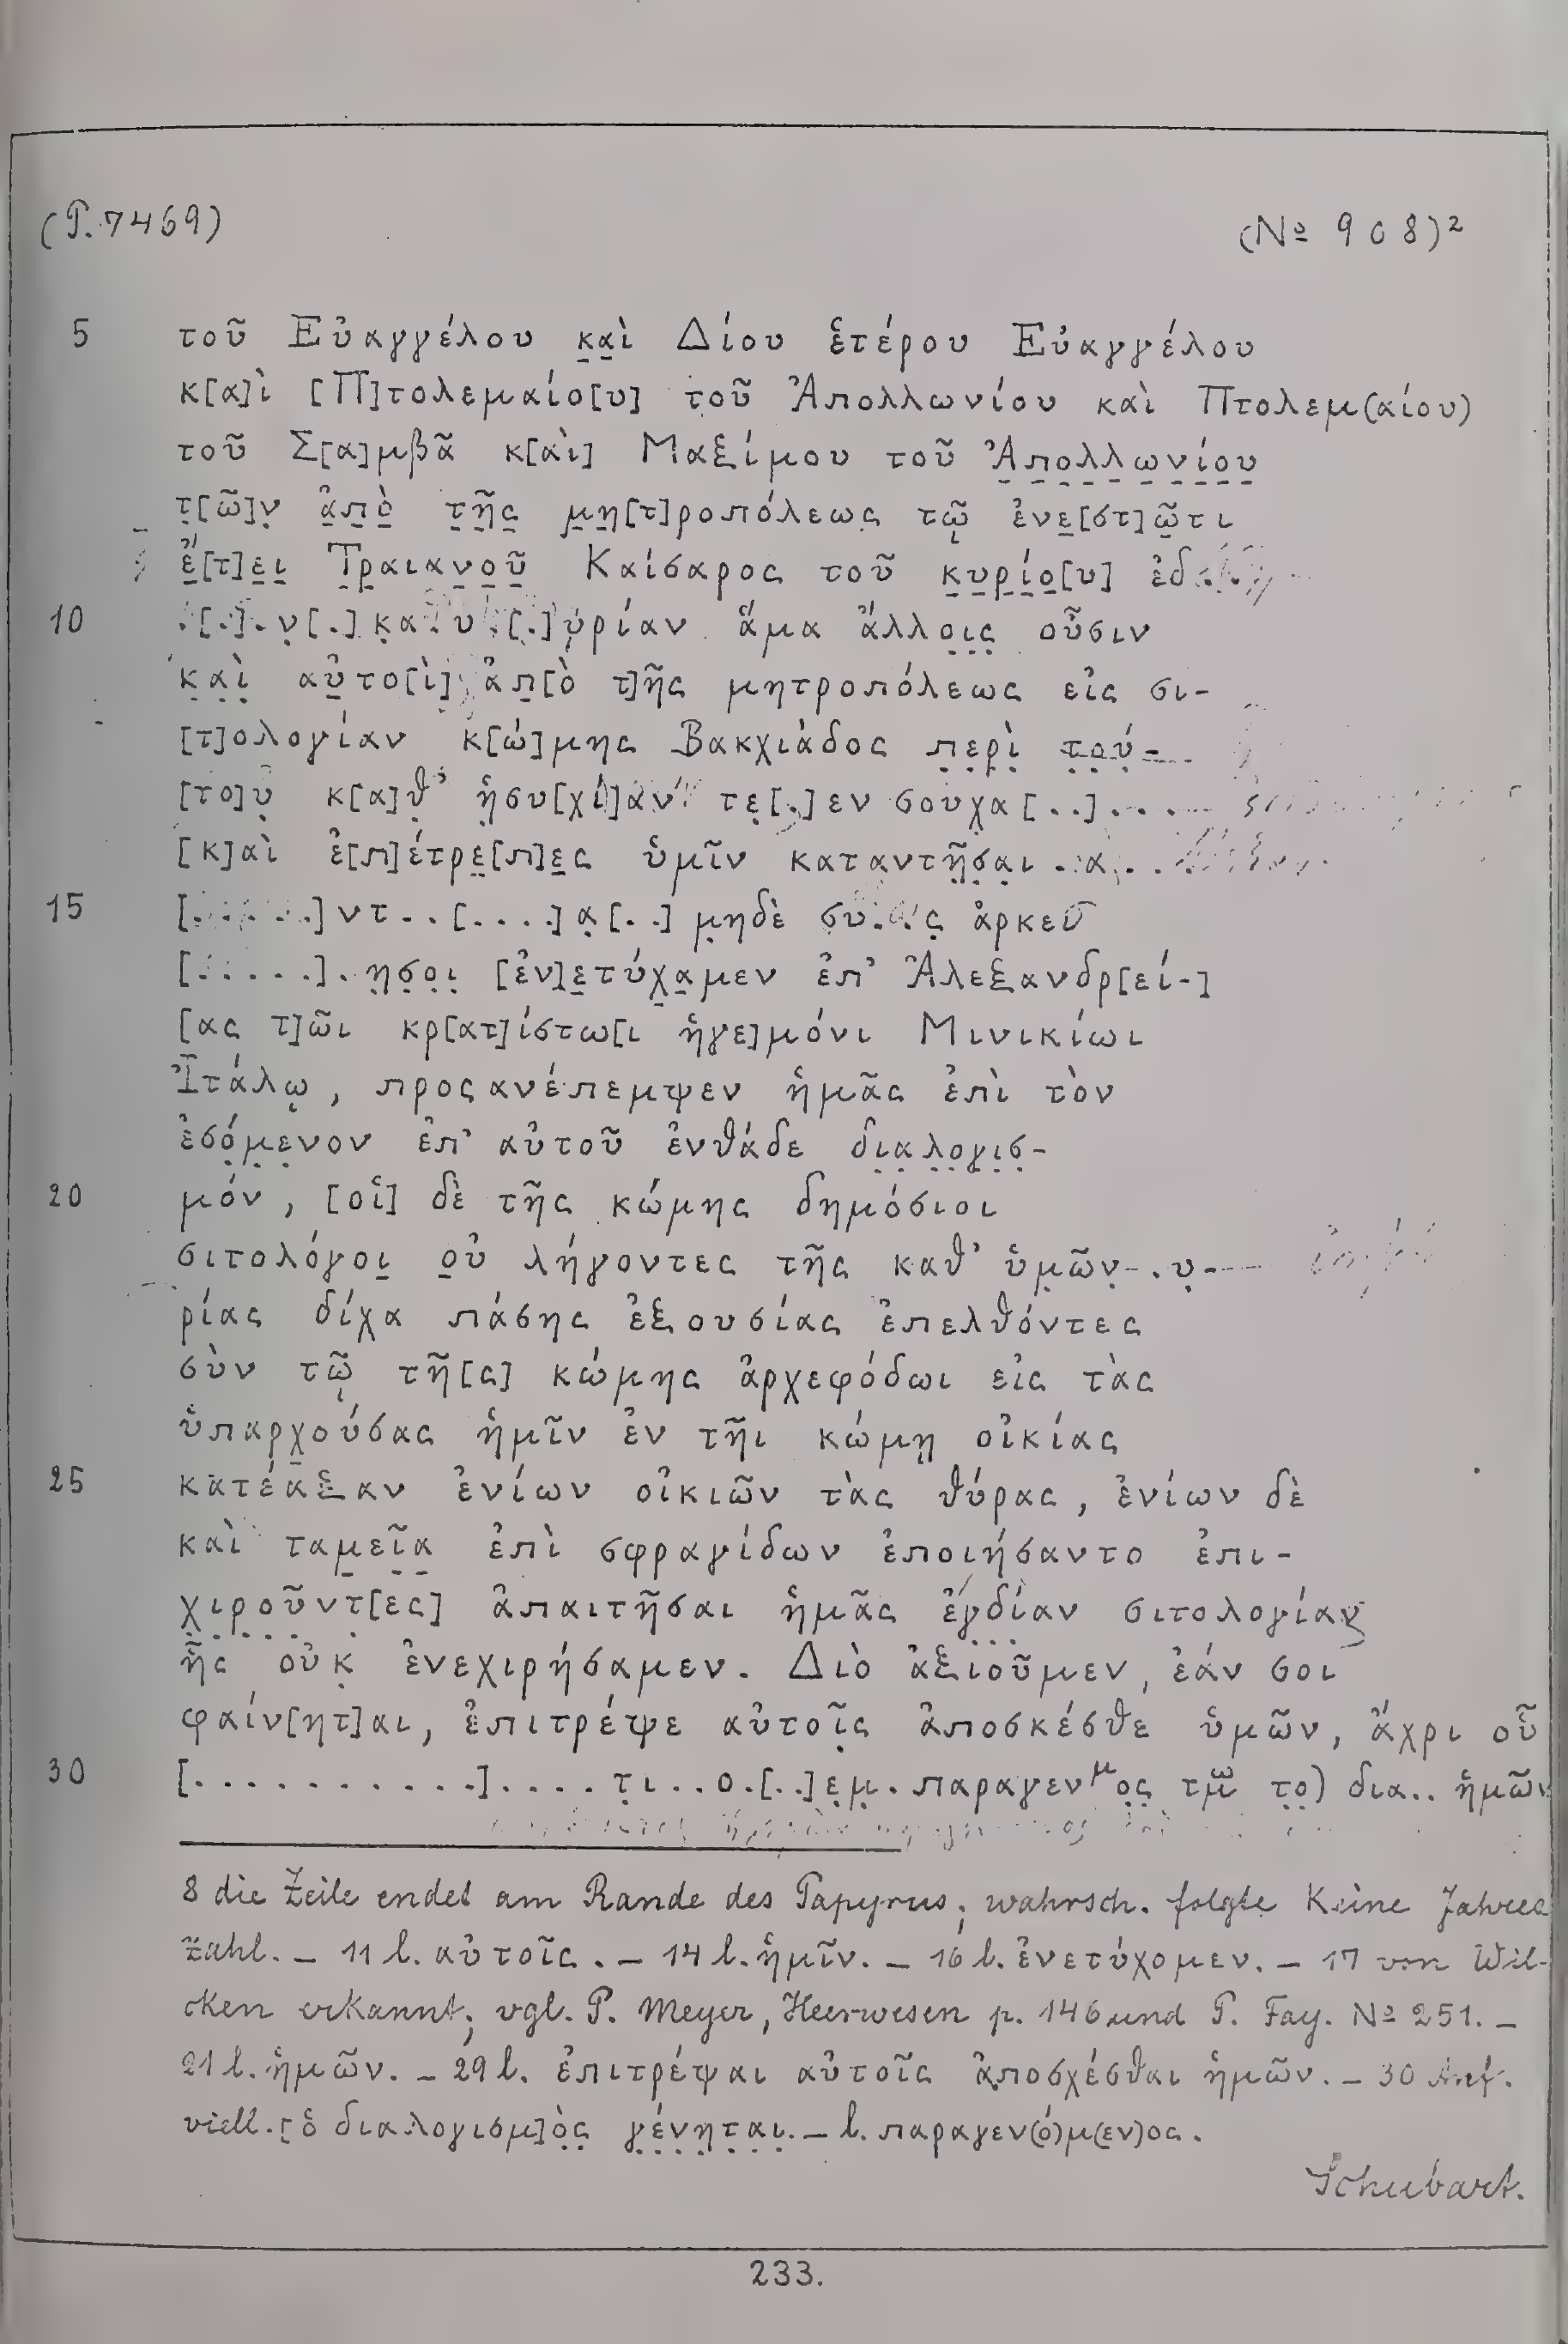 (P. 7469) (№ 908)²
5 τοῦ Εὐαγγέλου κ̣α̣ὶ Δίου ἑτέρου Εὐαγγέλου
κ[α]ὶ [Π]τολεμαίο[υ] τοῦ Ἀπολλωνίου καὶ Πτολεμ(αίου)
τοῦ Σ[α]μβᾶ κ[αὶ] Μαξίμου τοῦ Ἀ̣π̣ο̣λ̣λ̣ω̣ν̣ί̣ο̣υ̣
τ̣[ῶ]ν̣ ἀ̣π̣ὸ̣ τ̣ῆ̣ς̣ μ̣η̣[τ]ροπόλεως̣ τῷ ἐνε̣[στ]ῶ̣τι
ἔ̣[τ]ε̣ι̣ Τ̣ρ̣αιαν̣ο̣ῦ̣ Καίσαρος τοῦ κ̣υ̣ρ̣ί̣ο̣[υ] ἐδ
10 .[.].ν̣[.] κ̣α.υ.[.]υ̣ρίαν ἅμα ἄλλο̣ι̣ς̣ οὖσιν
κ̣α̣ὶ̣ αὐ̣το[ὶ] ἀπ̣[ὸ τ]ῆς μητροπόλεως εἰς σι-
[τ]ολογίαν κ[ώ]μης Βακχιάδος π̣ε̣ρ̣ὶ̣ τ̣ο̣ύ̣-
[το]υ̣ κ[α]θ̣’ ἡ̣συ[χί]αν τε̣[.]εν σουχ̣α[..]....
[κ]αὶ ἐ[π]έτρε̣[π]ε̣ς ὑμῖν καταντῆ̣σ̣α̣ι .α...
15 [......]ντ..[....]α̣[..] μ̣ηδὲ συ...ς̣ ἀρκευ
[......].η̣σ̣ο̣ι̣ [ἐν]ε̣τύχ̣α̣μεν ἐπ’ Ἀλεξανδρ[εί-]
[ας τ]ῶι κρ[ατ]ίστω[ι ἡγε]μόνι Μινικίωι
Ἰτάλῳ, προςανέπεμψεν ἡμᾶς ἐπὶ τὸν
ἐσό̣μ̣ε̣νον ἐπ’ αὐτοῦ ἐνθάδε δι̣α̣λ̣ο̣γ̣ι̣σ̣-
20 μόν, [οἱ] δὲ τῆς κώμης δημόσιοι
σιτολόγοι̣ ο̣ὐ λήγοντες τῆς καθ’ ὑμῶν̣ .υ̣-
ρίας δίχα πάσης ἐξουσίας ἐπελθόντες
σὺν τῷ τῆ[ς] κώμης ἀρχεφόδωι εἰς τὰς
ὑπαρχ̣ούσας ἡμῖν ἐν τῆι κώμῃ οἰκίας
25 κατέαξαν ἐνίων οἰκιῶν τὰς θύρας, ἐνίων δὲ
καὶ ταμ̣εῖ̣α̣ ἐπὶ σφραγίδων ἐποιήσαντο ἐπι-
χ̣ι̣ρ̣ο̣ῦ̣ντ̣[ες] ἀπαιτῆσαι ἡμᾶς ἐγ̣δ̣ί̣αν σιτολογίαν
ἧς οὐκ̣ ἐνεχιρήσαμεν. Διὸ ἀξιοῦμεν, ἐάν σοι
φαίν[ητ]αι, ἐπιτρέψε αὐτοῖ̣ς ἀποσκέσθε ὑμῶν, ἄχρι οὗ
30 [...........]....τ̣ι..ο.[..]ε̣μ̣.παραγενᵘο̣ς̣ τ̣ο̣) δια.. ἡμῶν
8 die Zeile endet am Rande des Papyrus; wahrsch. folgte keine Jahres
zahl. – 11 l. αὐτοῖς. – 14 l. ἡμῖν. – 16 l. ἐνετύχομεν. – 17 von Wil-
cken erkannt; vgl. P. Meyer, Heerwesen p. 146 und P. Fay. № 251. –
21 l. ἡμῶν. – 29 l. ἐπιτρέψαι αὐτοῖς ἀποσχέσθαι ἡμῶν. – 30 Anf.
viell. [ὁ διαλογισμ]ὸ̣ς̣ γ̣έ̣ν̣η̣τ̣α̣ι̣. – l. παραγεν(ό)μ(εν)ος.
Schubart.
233.